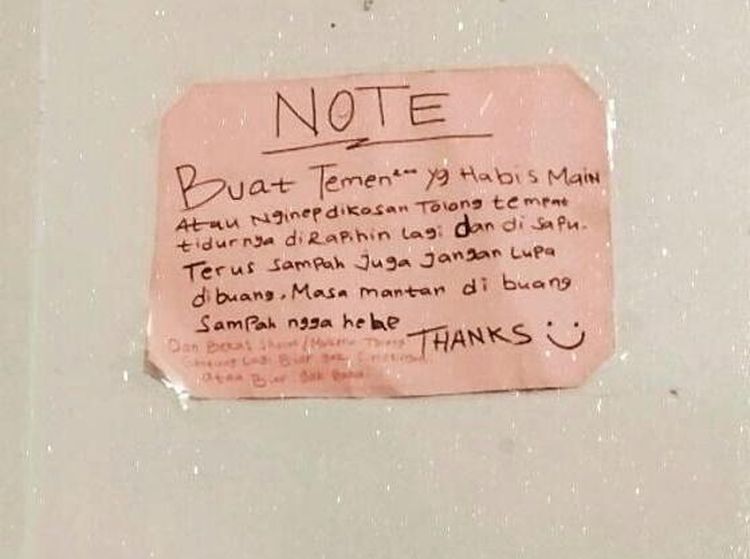 NOTE
Buat Temen² yg Habis Main
Atau Nginep dikosan Tolong tempat
tidurnya di Rapihin lagi dan di sapu.
Terus sampah juga jangan Lupa
dibuang, Masa mantan di buang
Sampah ngga hehe
THANKS :)
Dan Bekas
Lagi Biar Gak
atau Biar Gak